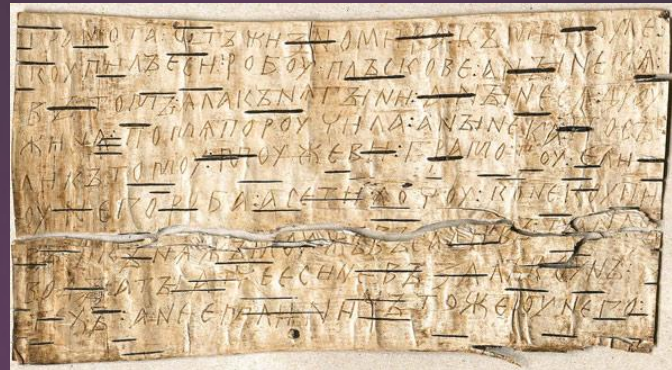 ГРАМОТА:ѠТЪЖИЗНОМИРАКЪМИКОУЛЕ:
КОУПИЛЪЕСИ:РОБОУ:ПЛЪСКОВЕ:АНЪІНЕМѦ:
ВЪТОМЪ:ѦЛАКЪНѦГЪІНИ:АНЪІНЕСѦДРОУ
ЖИНА:ПОМѦПОРОУЧИЛА:АНЪІНЕКА:ПОСЪ
ЛИКЪТОМОУ:МОУЖЕВИ:ГРАМОТОУ:ЕЛИ
ОУНЕГОРОБА:АСЕТИХОЧОУ:КОНЕКОУПИ
ВЪ:ИКЪНѦЖЪМОУЖЪВЪСАДИВЪ:ТАНАСЪ
ВОДЪІ:АТЪІАТЧЕЕСИНЕВЪЗАЛЪКОУНЪ:
ТЕХЪ:АНЕЕМЛИНИЧЪТОЖЕОУНЕГО: